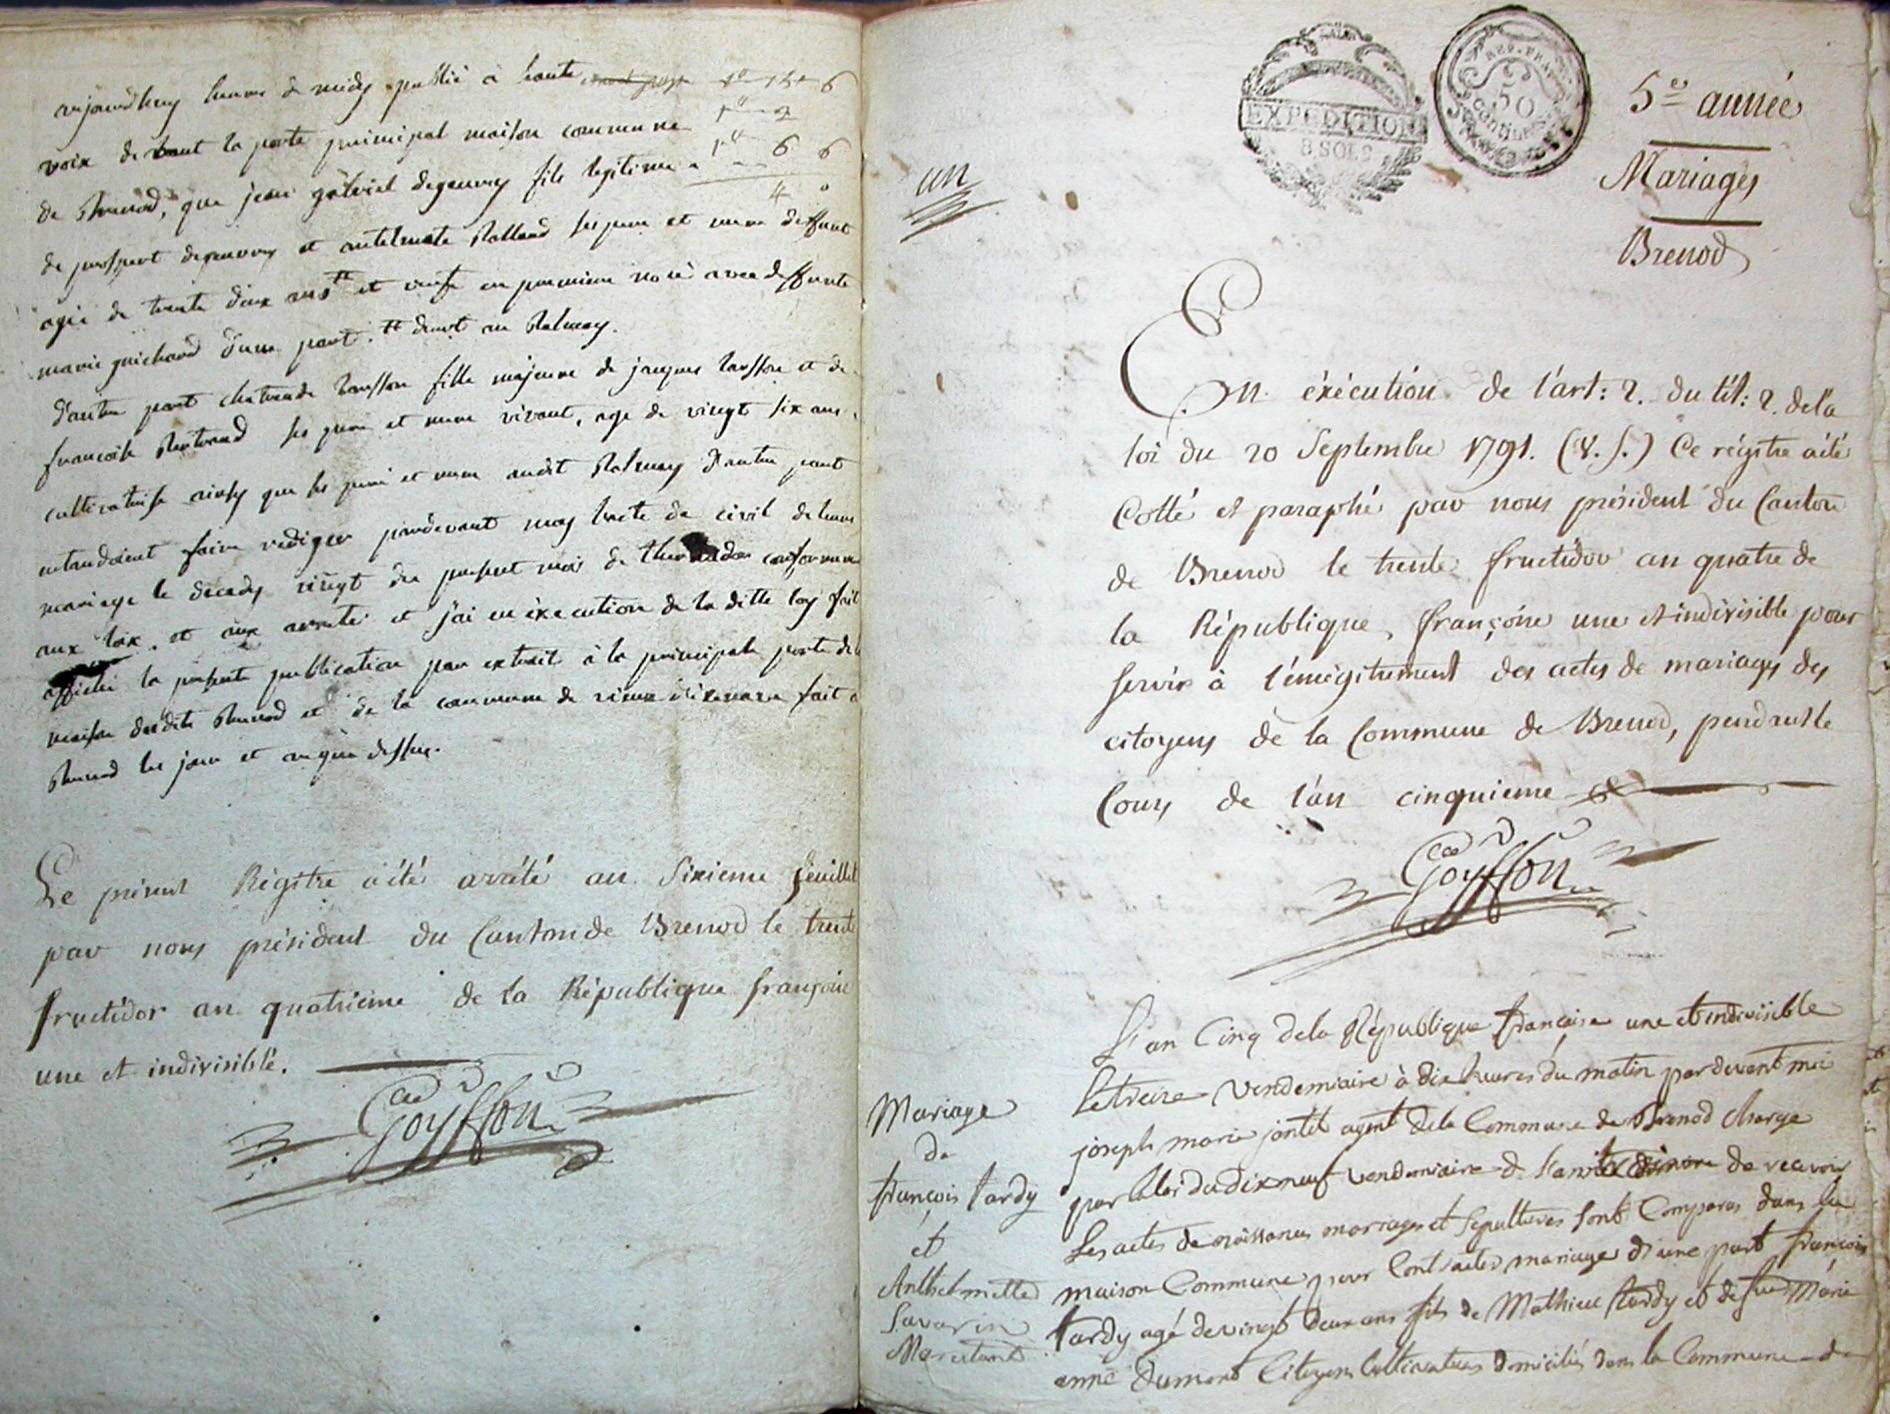 aujourdhuy heure de midy publié à haute
voix devant la porte principal maison commune
de Brenod, que jean gabriel degouvry fils legitime
de prospert degouvry et antelmete Rolland ses pere et mere deffunt
agéé de trente deux ans et veufe en premiere noce avec deffunte
marie guichard d'une part
d'autre part fille majeure de jacques et de
francoise Bertrand ses pere et mere vivant, age de vingt six ans
cultivatrise ainsy que ses pere et mere audit d'autre part
entendoient faire rediger pardevant moy de civil de leurs
mariage le decady vingt du present moi de
aux loix et aux arretés et j'ai en éxecution de la ditte loy fait
affiché la presente publication par extrait à la principale porte de la
maison dudit Brenod et de la commune de fait a
Brenod les jour et an que dessus.
Le présent Régitre a été arrêté au Sixieme feuillet
par nous président du Canton de Brenod le trente
fructidor an quatrieme de la République françoise
une et indivisible.
Goyffon
6
6 6
4
EXPEDITION
8 SOLS
REP. FRA.
50
Centimes
5e année
Mariages
Brenod
un
En éxécution de l'art: 2. du tit: 2. de la
loi du 20 Septembre 1791. (V. S.) Ce régitre a été
Cotté et paraphé par nous président du Canton
de Brenod le trente fructidor an quatre de
la République françoise une et indivisible pour
servir à l'énrégitrement des actes de mariages des
citoyens de la Commune de Brenod, pendant le
Cours de l'an cinquieme
Goyffon
Mariage
de
françois tardy
et
Anthelmette
Savarin
Marestant
L'an Cinq de la République française une et indivisible
le treize Vendemiaire à dix heures du matin pardevant moi
joseph marie jontet agent de la Commune de Brenod charge
par la loi du dixneuf vendemiaire de recevoir
Les actes de naissances mariages et sepultures sont Comparus dans la
maison Commune pour Contracter mariage d'une part françois
tardy agé de vingt deux ans fils de Mathieu tardy et de feue Marie
anne Dumont Citoyens Cultivateurs domiciliés dans la Commune de